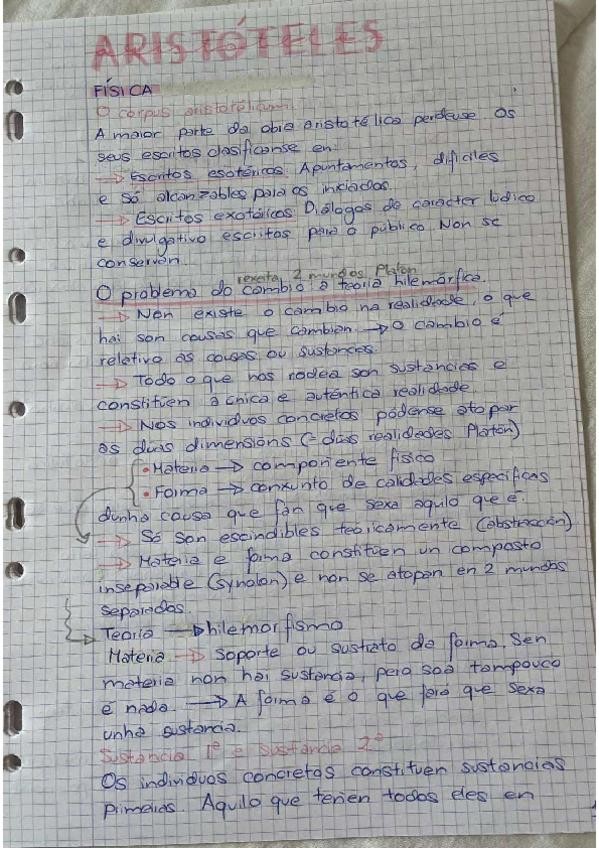 ARISTÓTELES
FÍSICA
O corpus aristotélicum.
A maior parte da obra aristotélica perdeuse. Os
seus escritos clasifícanse en:
→ Escritos esotéricos. Apuntamentos, difíciles
e só alcanzables para os iniciados.
→ Escritos exotéricos. Diálogos de carácter lúdico
e divulgativo escritos para o público. Non se
conservan.
rexeita 2 mundos Platón
O problema do cambio: a teoría hilemórfica.
→ Non existe o cambio na realidade, o que
hai son cousas que cambian → O cambio é
relativo ás cousas ou sustancias.
→ Todo o que nos rodea son sustancias e
constitúen a única e auténtica realidade.
→ Nos individuos concretos pódense atopar
as dúas dimensións (= dúas realidades Platón)
• Materia → compoñente físico
• Forma → conxunto de calidades específicas
dunha cousa que fan que sexa aquilo que é.
→ Só son escindibles teoricamente (abstracción)
→ Materia e forma constitúen un composto
inseparable (synolon) e non se atopan en 2 mundos
separados.
Teoría → hilemorfismo
Materia → soporte ou sustrato da forma. Sen
materia non hai sustancia, pero soa tampouco
é nada. → A forma é o que fará que sexa
unha sustancia.
Sustancia 1ª e sustancia 2ª
Os individuos concretos constitúen sustancias
primeiras. Aquilo que teñen todos eles en